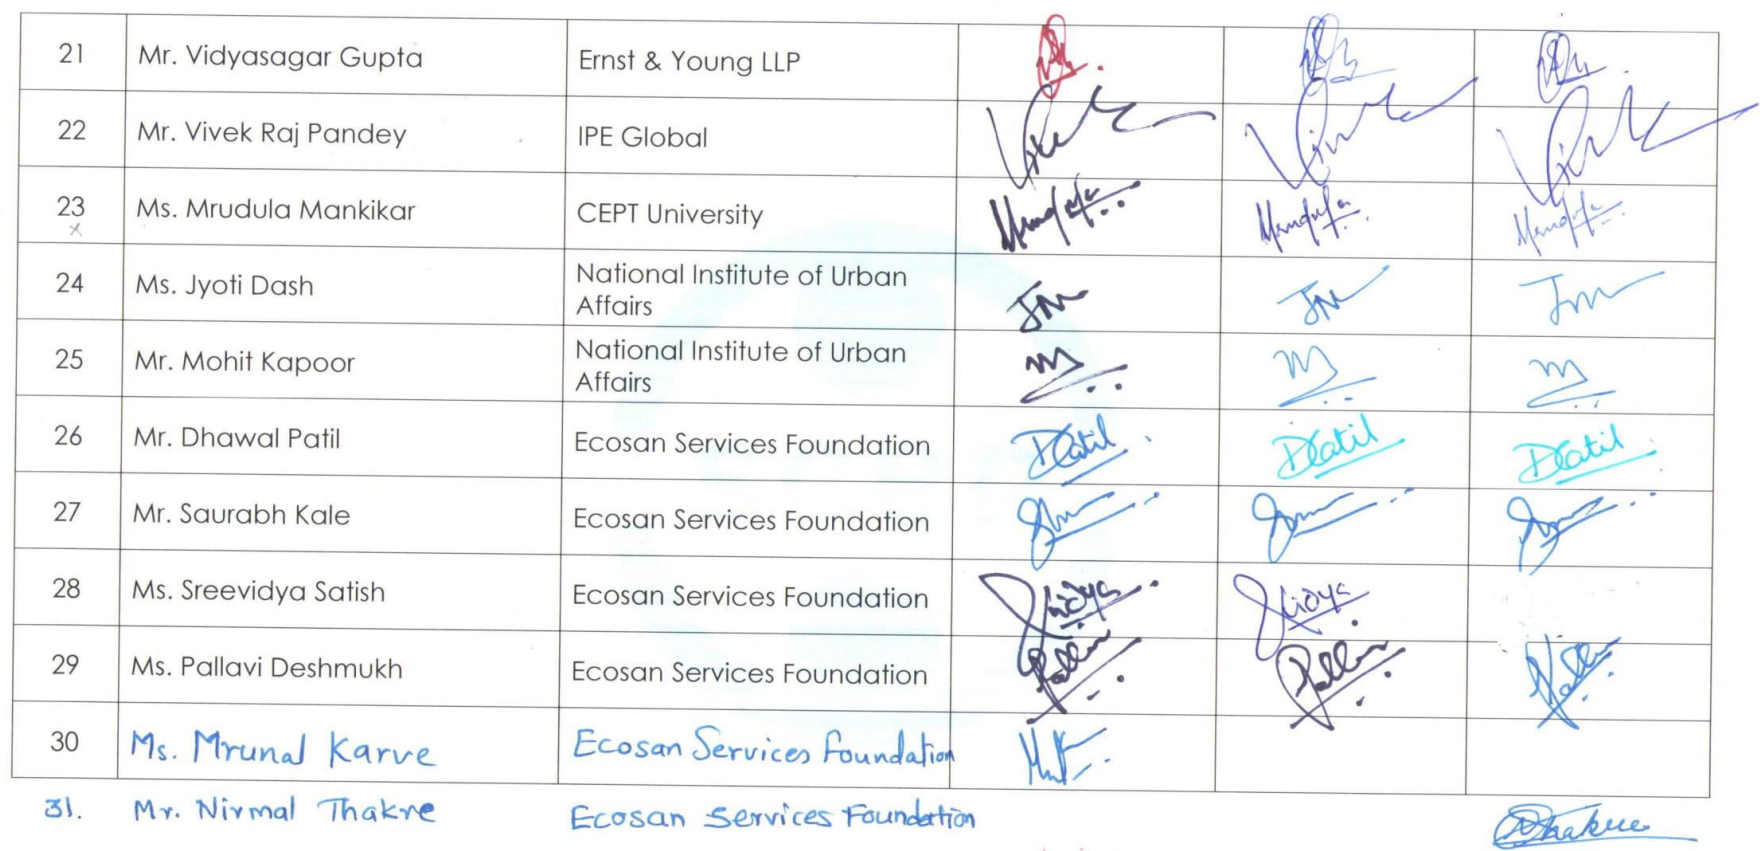 21 Mr. Vidyasagar Gupta Ernst & Young LLP
22 Mr. Vivek Raj Pandey IPE Global
23 Ms. Mrudula Mankikar CEPT University
24 Ms. Jyoti Dash National Institute of Urban
Affairs
25 Mr. Mohit Kapoor National Institute of Urban
Affairs
26 Mr. Dhawal Patil Ecosan Services Foundation DPatil DPatil DPatil
27 Mr. Saurabh Kale Ecosan Services Foundation
28 Ms. Sreevidya Satish Ecosan Services Foundation
29 Ms. Pallavi Deshmukh Ecosan Services Foundation
30 Ms. Mrunal Karve Ecosan Services Foundation
31. Mr. Nirmal Thakre Ecosan Services Foundation